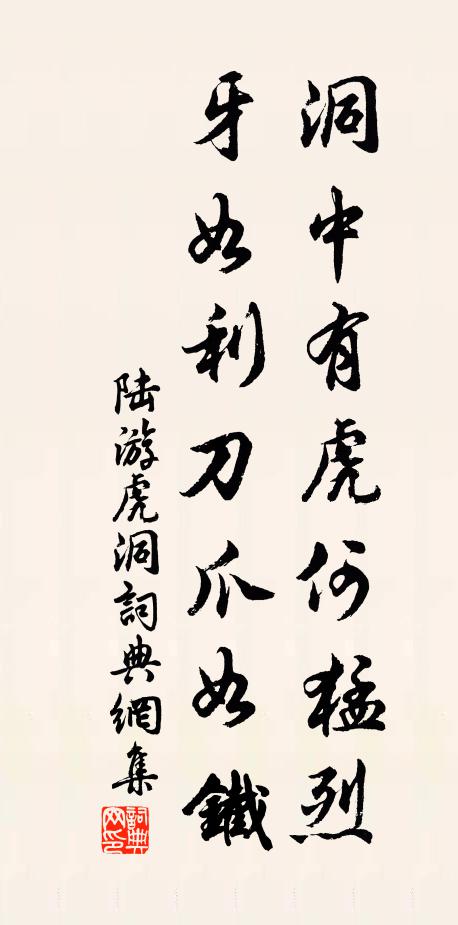 洞中有虎何猛烈
牙如利刀爪如鐵
陆游虎洞詞典網集
詞典网印